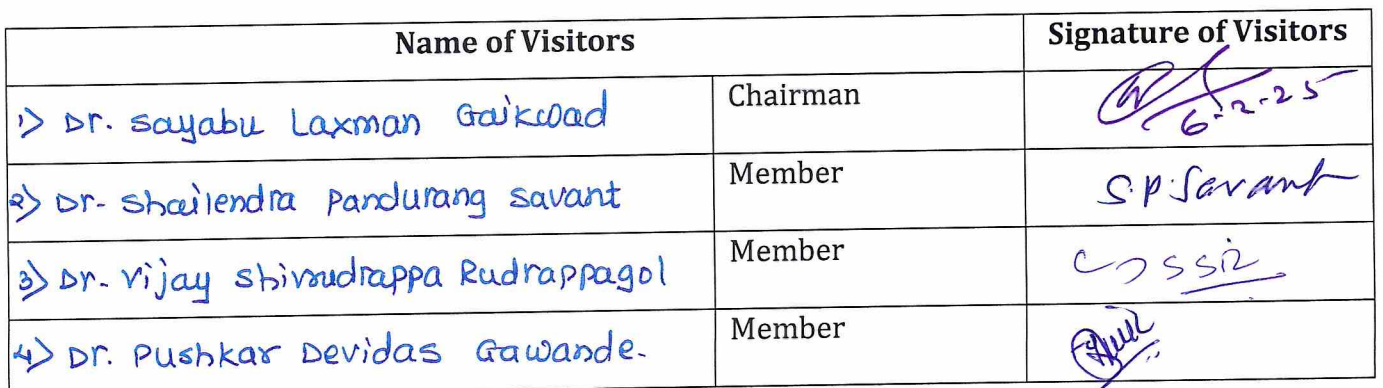 Name of Visitors Signature of Visitors
1) Dr. Sayabu Laxman Gaikwad Chairman 6-2-25
2) Dr. Shailendra Pandurang Savant Member S.P.Savant
3) Dr. Vijay Shivrudrappa Rudrappagol Member
4) Dr. Pushkar Devidas Gawande. Member